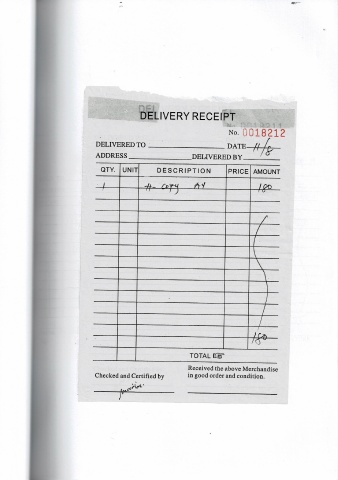 DELIVERY RECEIPT
No. 0018212
DELIVERED TO DATE 11/8
ADDRESS DELIVERED BY
QTY. UNIT DESCRIPTION PRICE AMOUNT
1 copy A4 180
180
TOTAL
Checked and Certified by
Received the above Merchandise
in good order and condition.